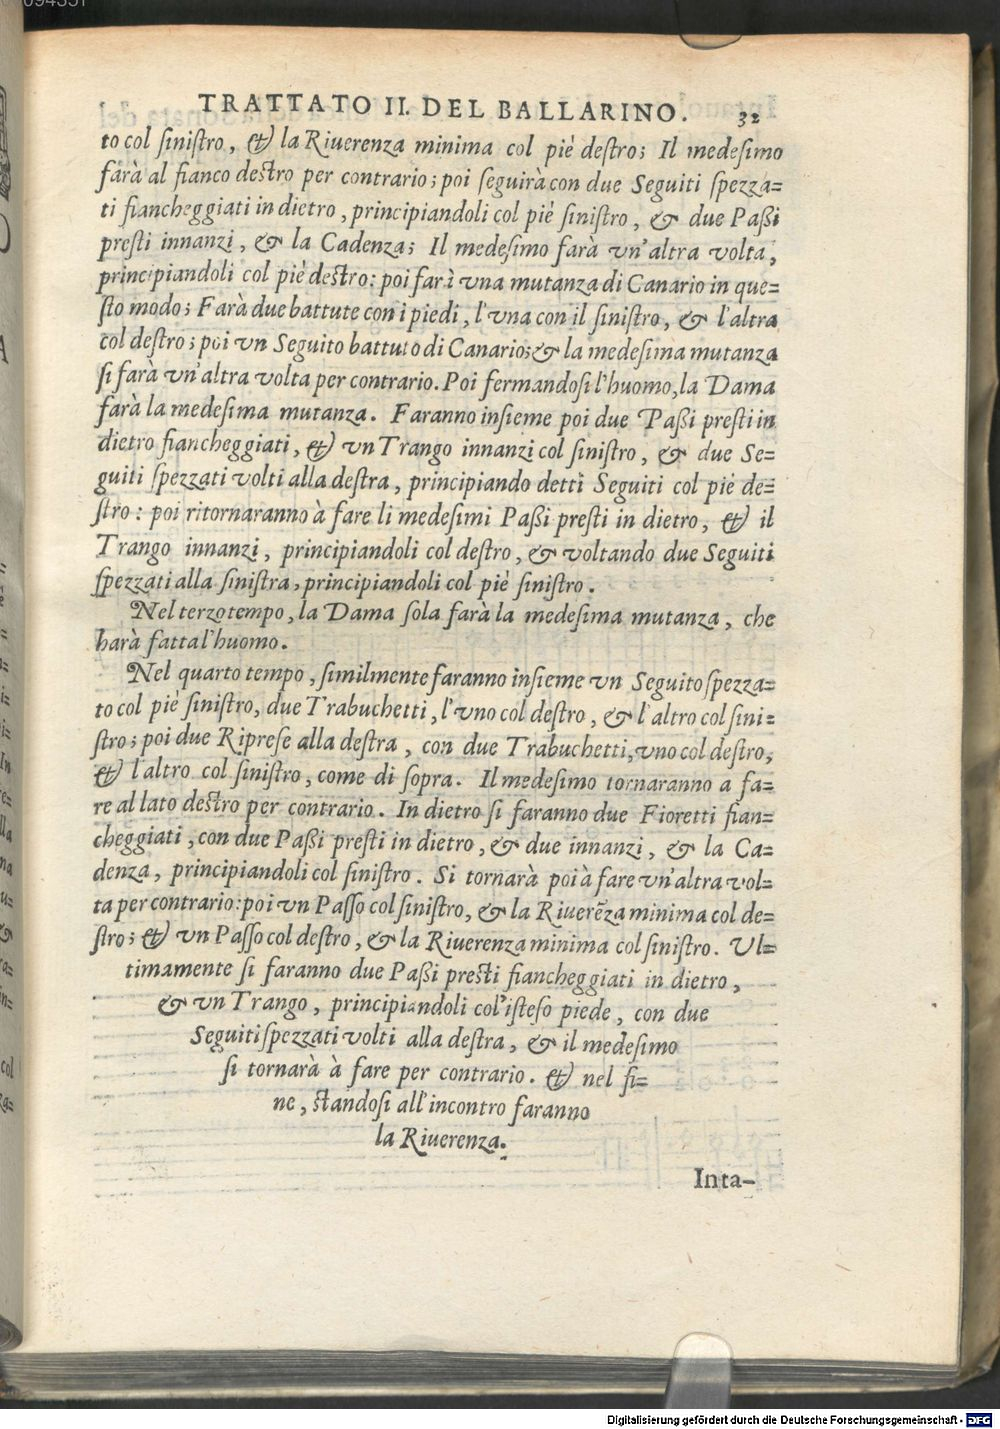 TRATTATO II. DEL BALLARINO. 32
to col ſiniſtro, & la Riuerenza minima col piè deſtro; Il medeſimo
farà al fianco deſtro per contrario; poi ſeguirà con due Seguiti ſpezza=
ti fiancheggiati in dietro, principiandoli col piè ſiniſtro, & due Paßi
preſti innanzi, & la Cadenza; Il medeſimo farà vn'altra volta,
principiandoli col piè deſtro: poi farà vna mutanza di Canario in que=
ſto modo; Farà due battute con i piedi, l'vna con il ſiniſtro, & l'altra
col deſtro; poi vn Seguito battuto di Canario; & la medeſima mutanza
ſi farà vn'altra volta per contrario. Poi fermandoſi l'huomo, la Dama
farà la medeſima mutanza. Faranno inſieme poi due Paßi preſti in
dietro fiancheggiati, & vn Trango innanzi col ſiniſtro, & due Se=
guiti ſpezzati volti alla deſtra, principiando detti Seguiti col piè de=
ſtro: poi ritornaranno à fare li medeſimi Paßi preſti in dietro, & il
Trango innanzi, principiandoli col deſtro, & voltando due Seguiti
ſpezzati alla ſiniſtra, principiandoli col piè ſiniſtro.
Nel terzo tempo, la Dama ſola farà la medeſima mutanza, che
harà fatta l'huomo.
Nel quarto tempo, ſimilmente faranno inſieme vn Seguito ſpezza=
to col piè ſiniſtro, due Trabuchetti, l'vno col deſtro, & l'altro col ſini=
ſtro; poi due Ripreſe alla deſtra, con due Trabuchetti, vno col deſtro,
& l'altro col ſiniſtro, come di ſopra. Il medeſimo tornaranno a fa=
re al lato deſtro per contrario. In dietro ſi faranno due Fioretti fian=
cheggiati, con due Paßi preſti in dietro, & due innanzi, & la Ca=
denza, principiandoli col ſiniſtro. Si tornarà poi à fare vn'altra vol=
ta per contrario: poi vn Paſſo col ſiniſtro, & la Riuerẽza minima col de=
ſtro; & vn Paſſo col deſtro, & la Riuerenza minima col ſiniſtro. Vl=
timamente ſi faranno due Paßi preſti fiancheggiati in dietro,
& vn Trango, principiandoli col'iſteſo piede, con due
Seguiti ſpezzati volti alla deſtra, & il medeſimo
ſi tornarà à fare per contrario. & nel fi=
ne, ſtandoſi all'incontro faranno
la Riuerenza.
Inta-
Digitalisierung gefördert durch die Deutsche Forschungsgemeinschaft - DFG